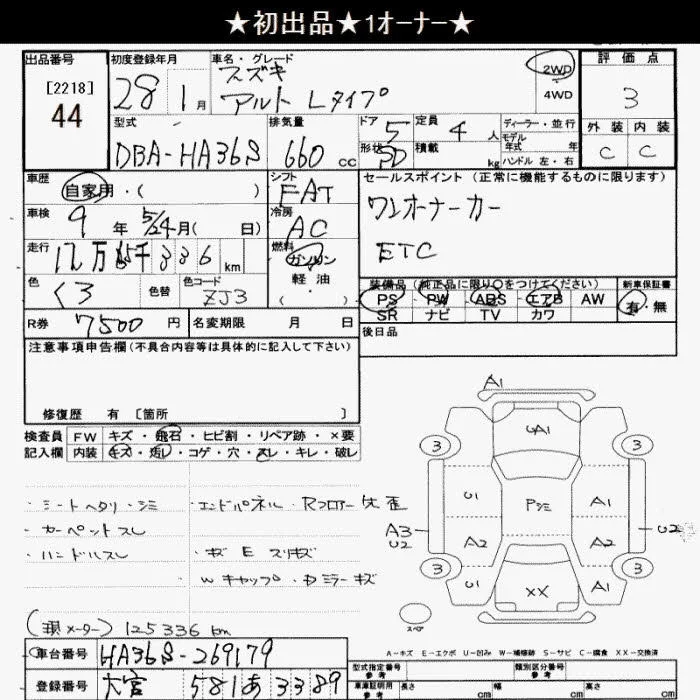 ★初出品★1オーナー★
出品番号
[2218]
44
初度登録年月
28 1月
車名・グレード
スズキ
アルト Lタイプ
2WD
4WD
評価点
3
外装 内装
C C
型式
DBA-HA36S
排気量
660 cc
ドア 5
形状 5D
定員 4 人
積載 kg
ディーラー・並行
モデル年式 年
ハンドル 左・右
車歴
自家用・( )
シフト
FAT
セールスポイント(正常に機能するものに限ります)
ワンオーナーカー
ETC
車検
9年 5/24月( 日)
冷房
AC
走行
12万 5千 336 km
燃料
ガソリン
軽油
・
( )
色
クロ
色替
色コード
ZJ3
装備品(純正品に限り〇をつけてください)
PS PW ABS エアB AW
SR ナビ TV カワ
新車保証書
有・無
R券 7500 円
名変期限 月 日
後日品
注意事項申告欄(不具合内容等は具体的に記入して下さい)
修復歴 有〔箇所 〕
検査員 FW キズ・飛石・ヒビ割・リペア跡・×要
記入欄 内装 キズ・汚レ・コゲ・穴・スレ・キレ・破レ
・シートヘタリ・シミ
・カーペットスレ
・ハンドルスレ
・エンドパネル・Rフロアー
・キズ E スリキズ
W キャップ・ドミラーキズ
A1
UA1
3 3
U1 Pシミ A1
A3
U2
U2
A2 A2
3 3
U1 XX A1
スペア
(現メーター) 125336 km
A-キズ E-エクボ U-凹み W-補修跡 S-サビ C-腐食 XX-交換済
車台番号 HA36S-269179
登録番号 大宮 581 あ 3389
型式指定番号 参考
類別区分番号 参考
車庫証明用 参考
長さ cm
幅 cm
高さ cm